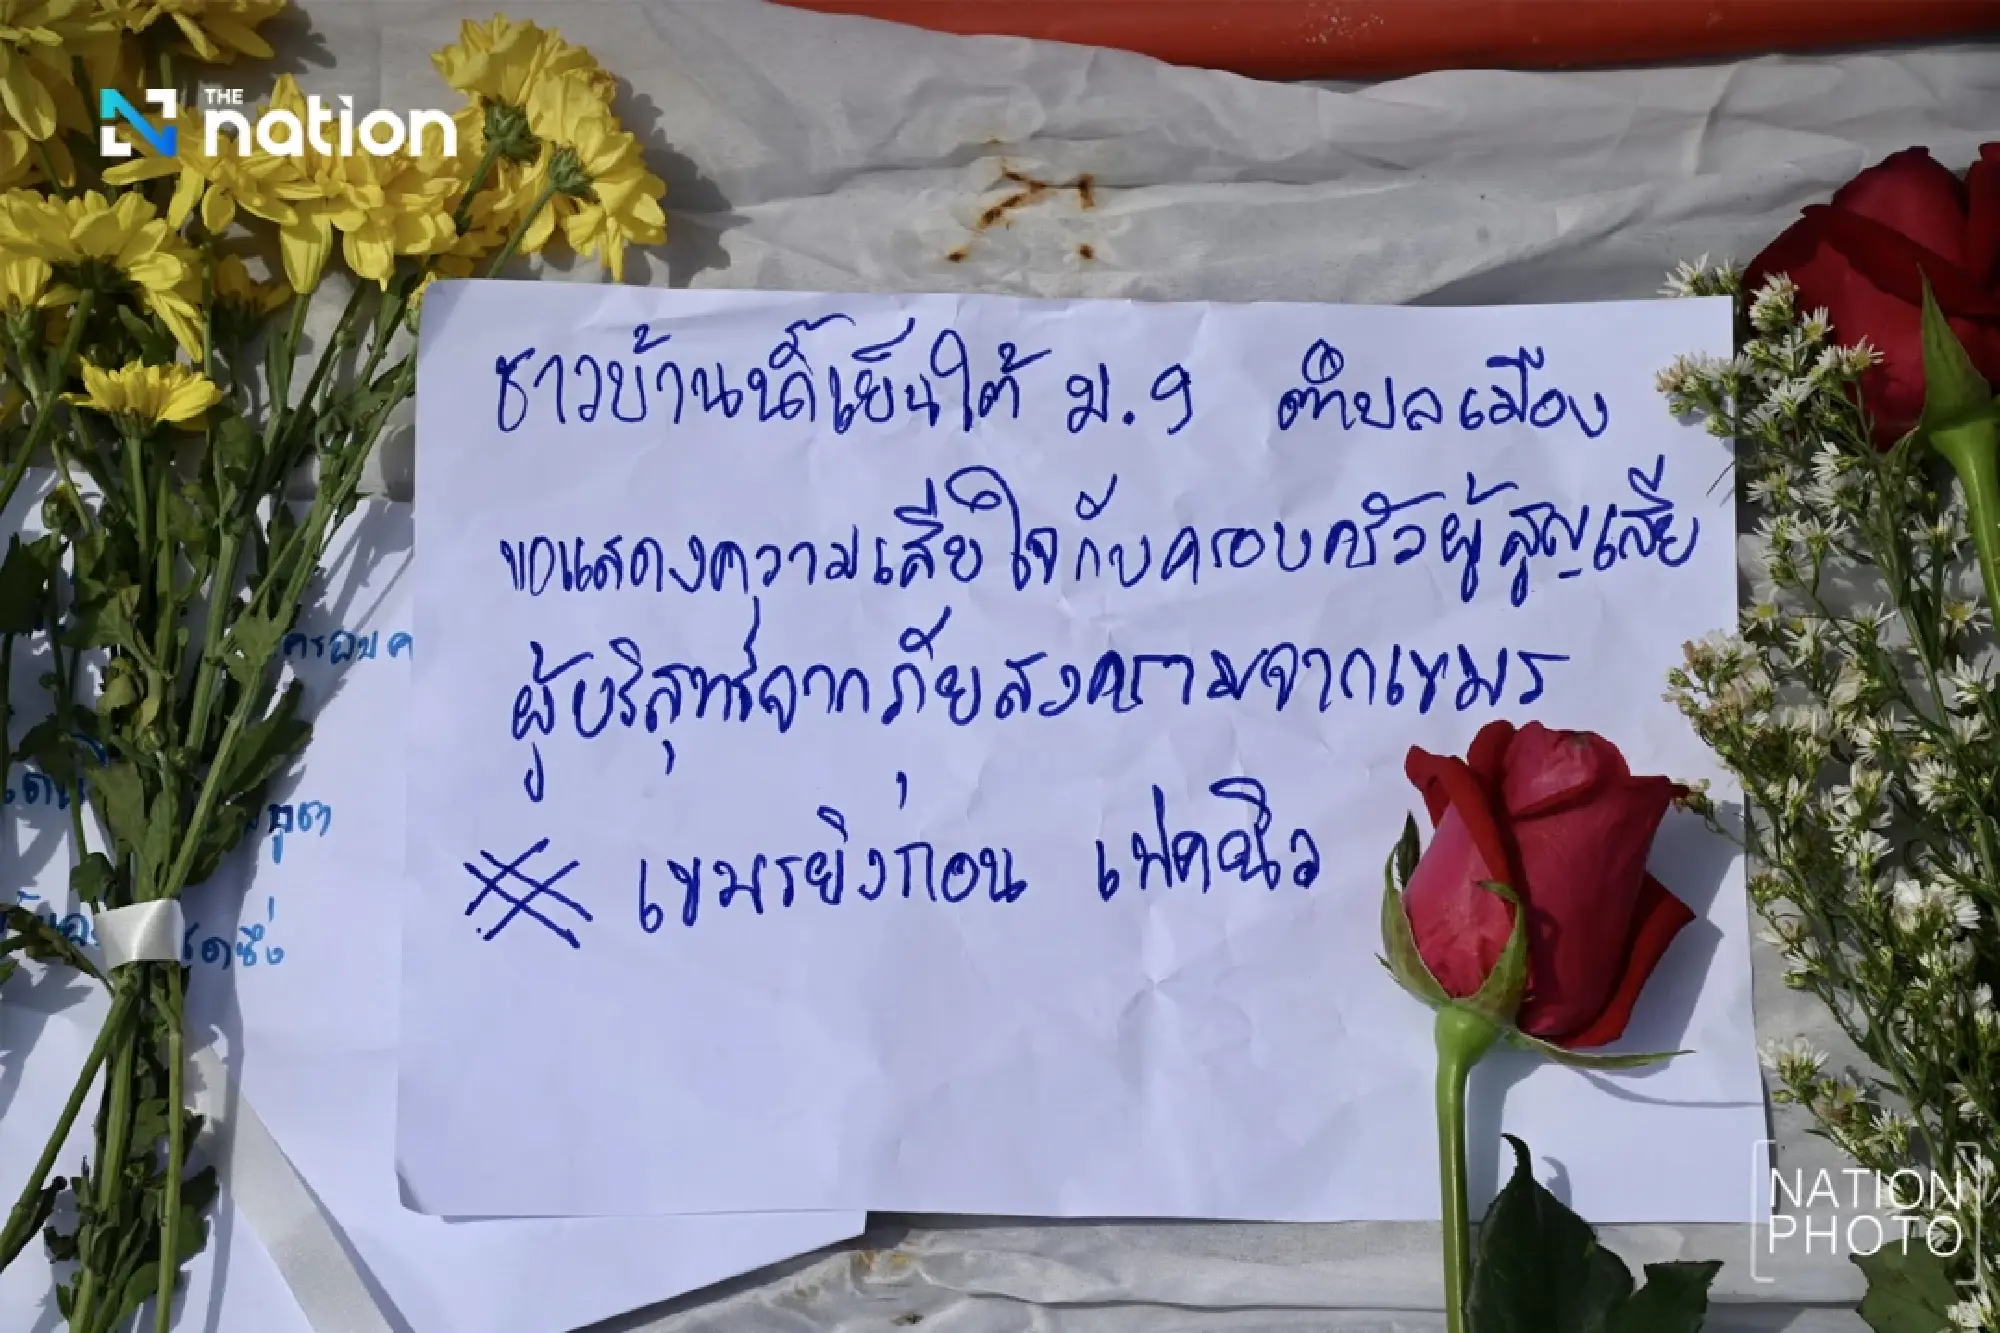 THE
nation
ชาวบ้านน้ำเย็นใต้ ม.9 ตำบลเมือง
ขอแสดงความเสียใจกับครอบครัวผู้สูญเสีย
ผู้บริสุทธิ์จากภัยสงครามจากเขมร
เขมรยิงก่อน เฟคนิว
ครอบค
ภูชา
NATION
PHOTO